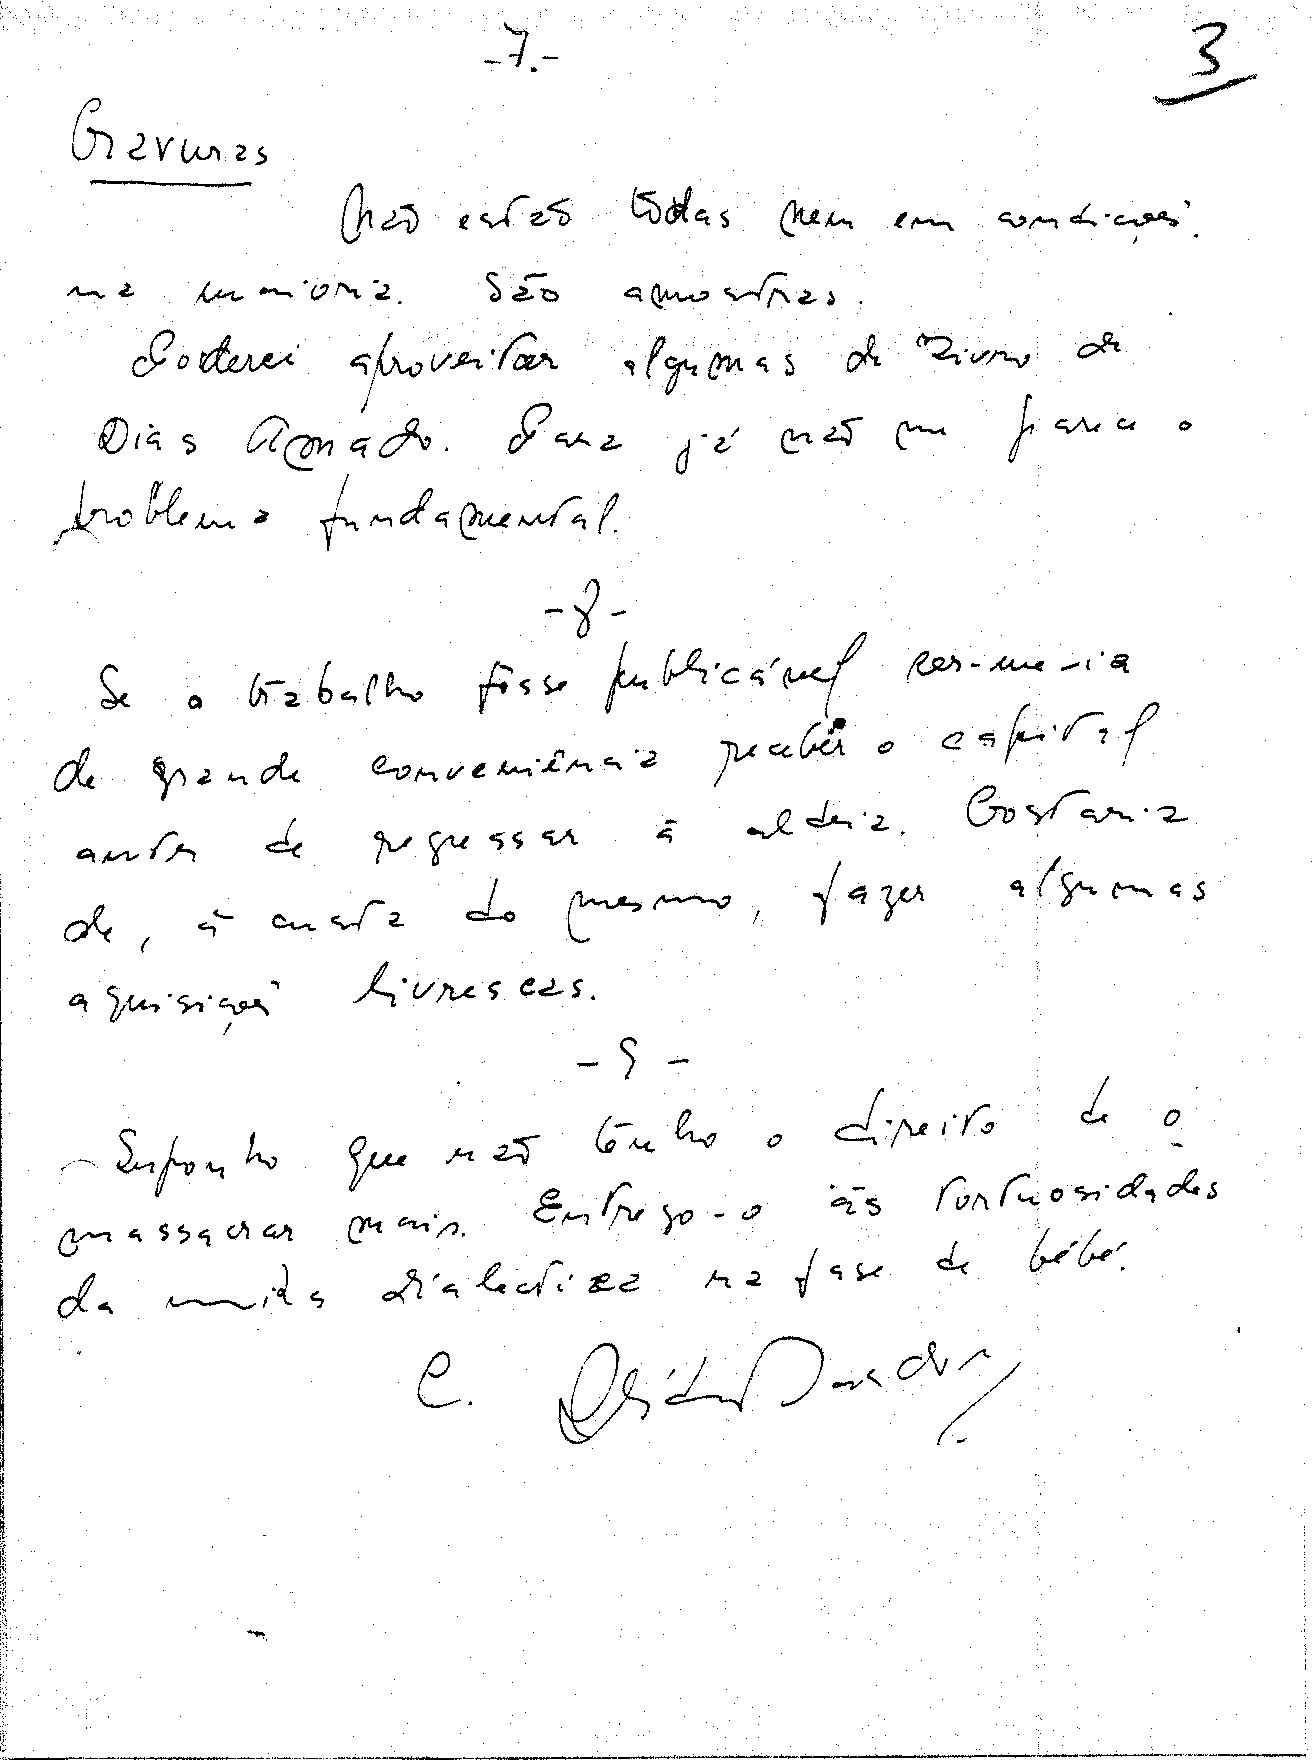 -7.-
3
Gravuras
Não estão todas nem em condições
na maioria. São amostras.
Poderei aproveitar algumas do Livro de
Dias Amado. Para já não me parece o
problema fundamental.
-8-
Se o trabalho fôsse publicável ser-me-ia
de grande conveniência receber o capital
antes de regressar à aldeia. Gostaria
de, à custa do mesmo, fazer algumas
aquisições livrescas.
- 9 -
Suponho que não tenho o direito de o
massacrar mais. Entrego-o às tortuosidades
da minha dialectica na fase de bébé.
C.